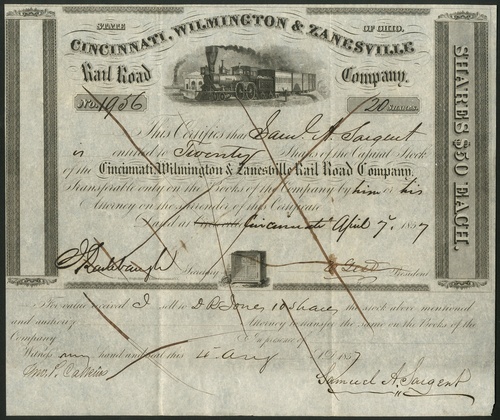 STATE OF OHIO.
CINCINNATI, WILMINGTON & ZANESVILLE
Rail Road Company.
No. 1956 20 Shares
This Certifies that Saml A. Sargent
is entitled to Twenty Shares of the Capital Stock
of the Cincinnati, Wilmington & Zanesville Rail Road Company.
Transferable only on the Books of the Company by him or his
Attorney on the surrender of this Certificate
Dated at Cincinnati April 7th 1857
Secretary President
SHARES $50 EACH.
For value received I sell to D B Jones 10 Shares the stock above mentioned
and authorize Attorney to transfer the same on the Books of the
Company
Witness my hand and seal this 4th Aug 1857
Samuel A. Sargent